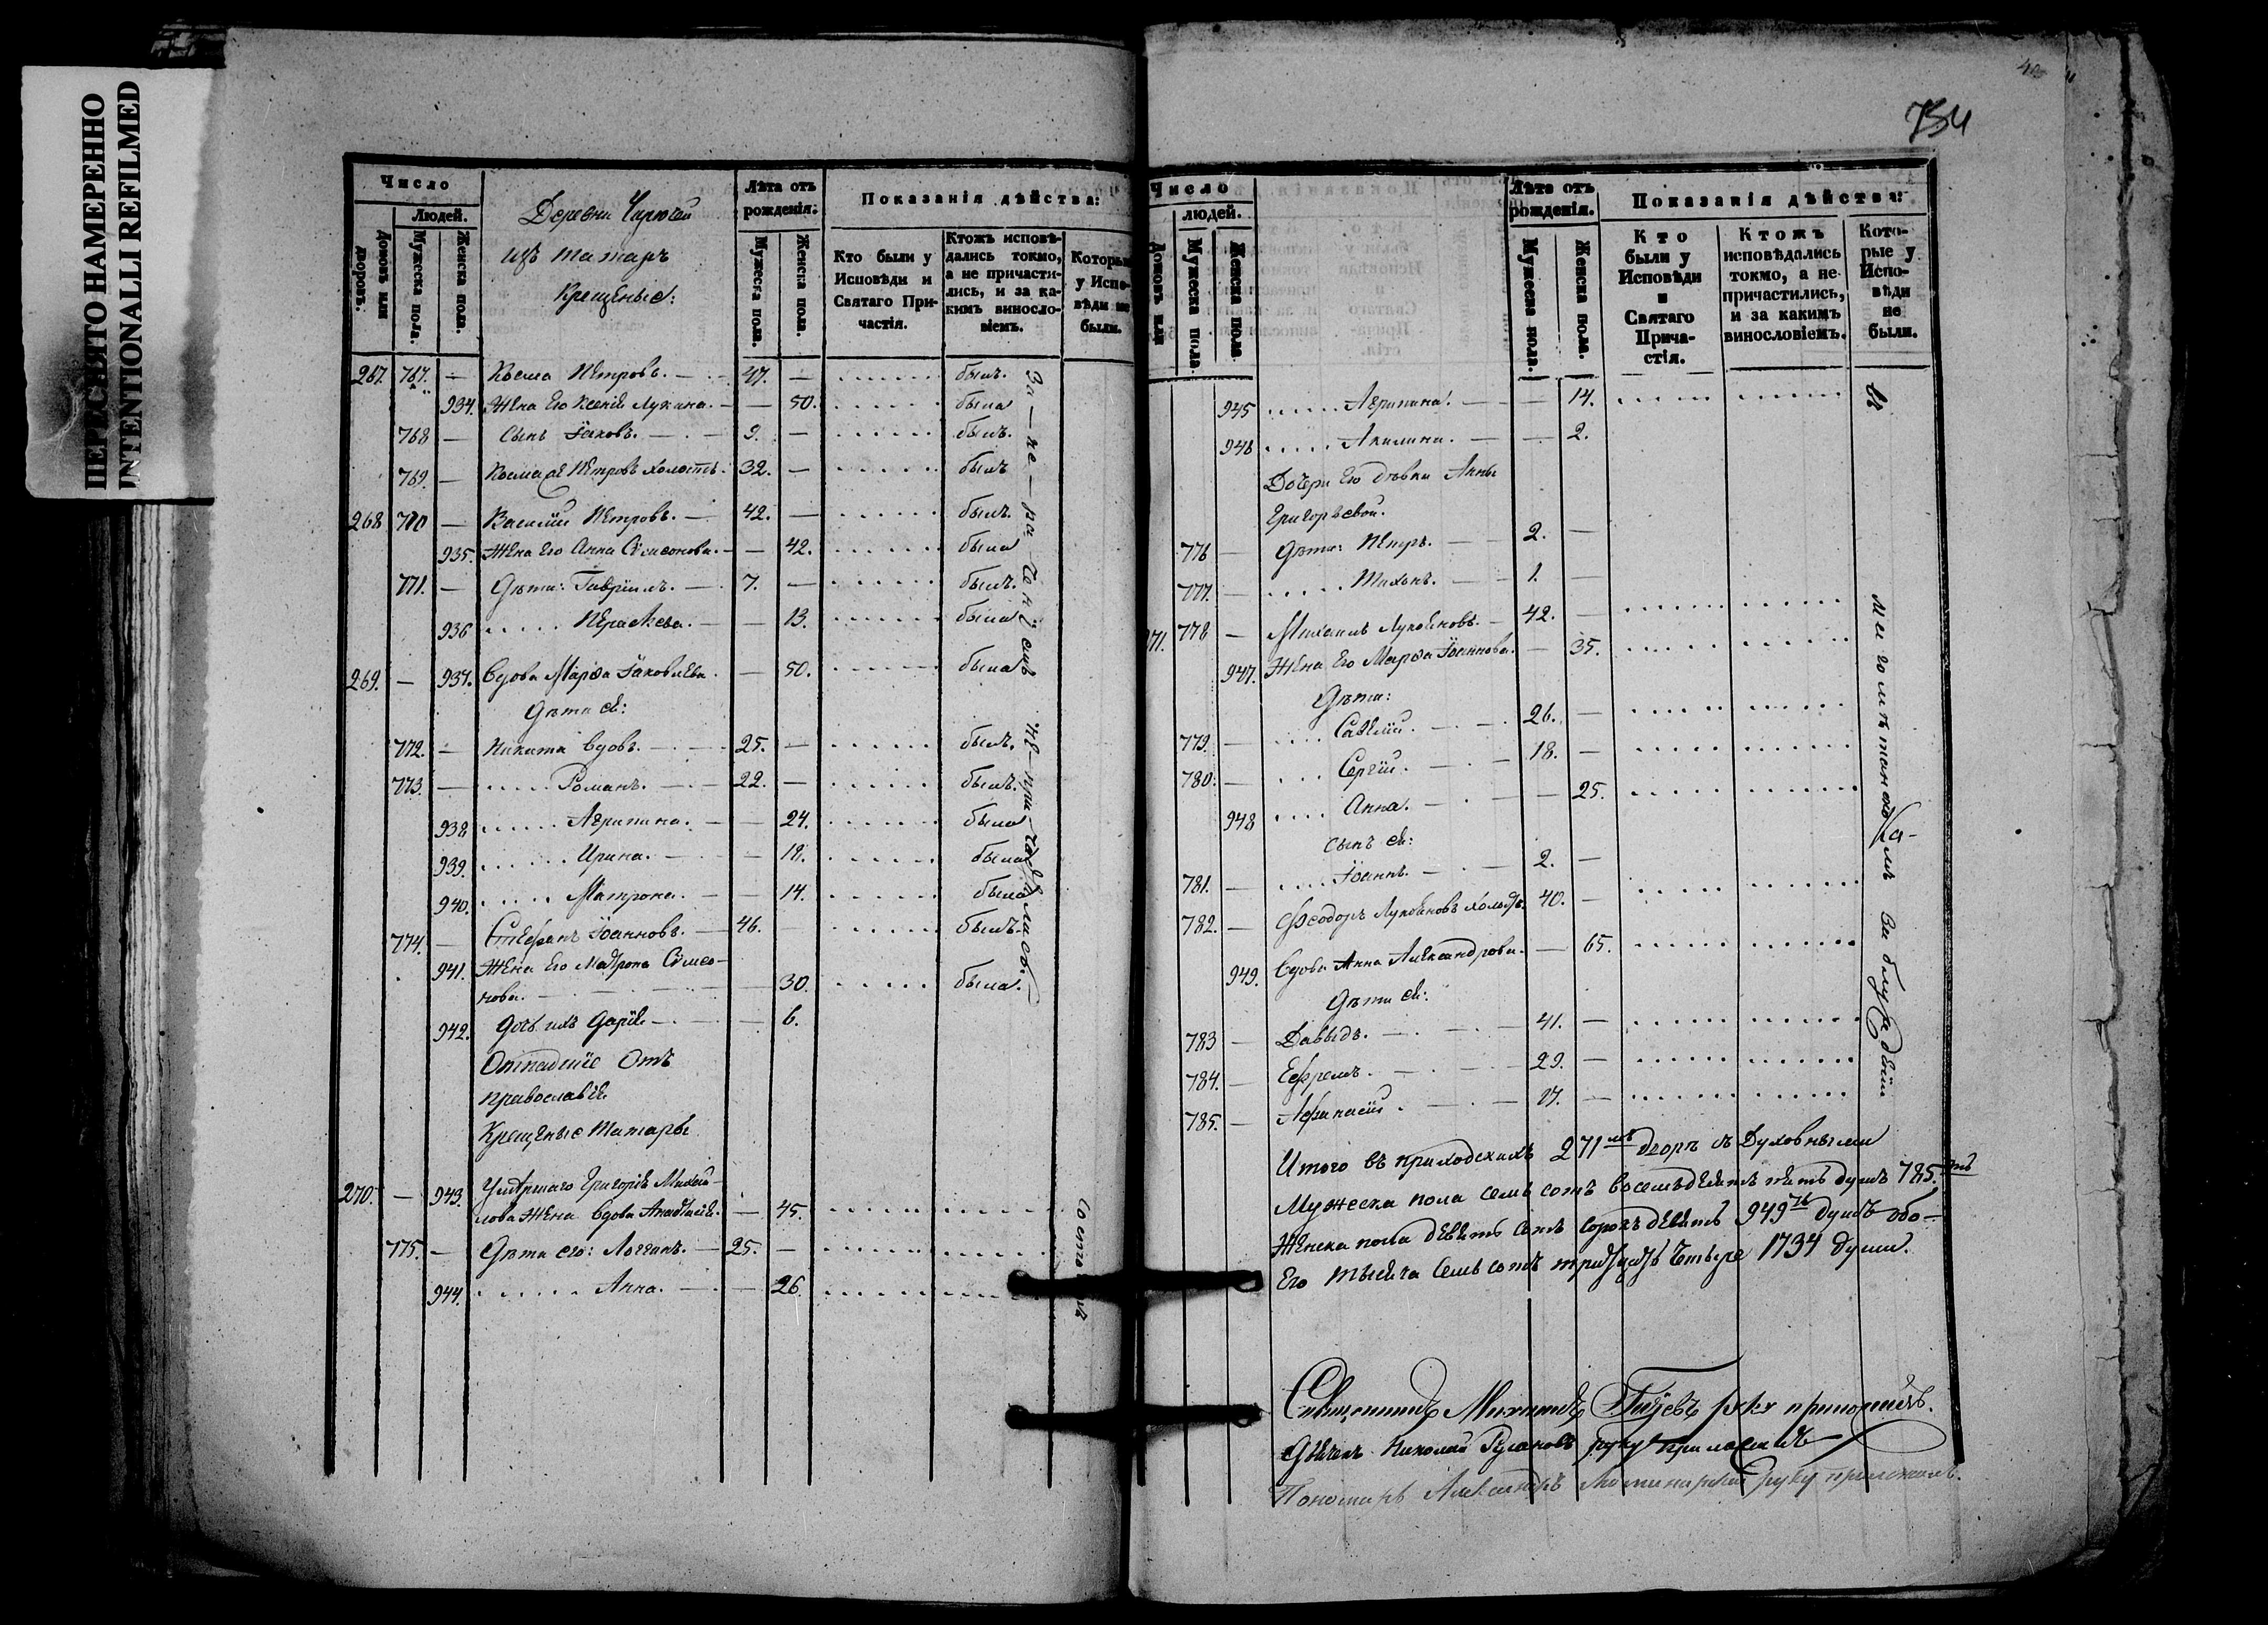 ПЕРЕСНЯТО НАМЕРЕННО
INTENTIONALLI REFILMED
Число
Людей.
Домовъ или дворовъ.
Мужеска пола.
Женска пола.
Деревни
изъ татаръ
Крещеные:
Лѣта отъ рожденія.
Мужеска пола.
Женска пола.
Показанія дѣйства:
Кто были у Исповѣди и Святаго Причастія.
Ктожъ исповѣдались токмо, а не причастились, и за какимъ винословіемъ.
Которые у Исповѣди не были.
267. 767. — Косма Петровъ. — 47. — ...... былъ.
934. Жена Его Ксенія Лукина. — — 50. ...... была
768 — Сынъ Іаковъ. — 9. — ...... былъ.
769. — Косма же Петровъ холостъ. 32. — ...... былъ
268 770 — Василій Петровъ. — 42. — ...... былъ.
935. Жена Его Анна Симеонова. — — 42. ...... была
771. — Дѣти: Гавріилъ. — 7. — ...... былъ.
936 ..... Параскева. — — 13. ...... была
269. — 937. Вдова Марѳа Іаковлева. — 50. ...... была
Дѣти ея:
772. — Никита вдовъ. — 25. — ...... былъ.
773. — ..... Романъ. — 22. — ...... былъ.
938 ..... Агрипина. — — 24. ...... была
939. ..... Ирина. — — 18. ...... была
940. ..... Матрона. — — 14. ...... была
774. — Стефанъ Іоанновъ. — 46. — ...... былъ.
941. Жена Его Матрона Симео-
нова. — — 30. ...... была.
942. Дочь ихъ Дарія — — 6.
За не-ра-ченіемъ не при-частились.
Отпадшіе Отъ
православія
Крещеные Татары
270. — 943. Умершаго Григорія Михай-
лова Жена вдова Анастасія. — 45. ......
775. — Дѣти его: Логгинъ. — 25. — ......
944. ..... Анна. — — 26. ......
754
Число
людей.
Домовъ или
Мужеска пола
Женска пола
Лѣта отъ рожденія.
Мужеска пола.
Женска пола.
Показанія дѣйства:
Кто были у Исповѣди и Святаго Причастія.
Ктожъ исповѣдались токмо, а не причастились, и за какимъ винословіемъ.
Которые у Исповѣди не были.
945 ..... Агрипина. — — 14. ......
946 ..... Акилина. — — 2.
Дочери Его дѣвки Анны
Григорьевой.
776 — Дѣти: Петръ. — 2. —
777. — ..... Тихонъ. — 1. —
271. 778 — Михаилъ Лукояновъ. — 42. — ......
947. Жена Его Марѳа Іоаннова. — 35. ......
Дѣти:
779. — .... Савелій. — 26. — ......
780. — .... Сергій. — 18. — ......
948 .... Анна. — — 25. ......
Сынъ ея:
781. — .... Іоаннъ. — 2. —
782. — Феодоръ Лукояновъ холостъ. 40. — ......
949. Вдова Анна Александрова. — 65. ......
Дѣти ея:
783 — Давыдъ. — 41. — ......
784. — Ефремъ. — 29. — ......
785. — Афанасій. — 17. — ......
въ
за
Итого въ приходскихъ 271мъ дворѣ съ Духовными
Мужеска пола семь сотъ восемьдесятъ пять душъ 785.ть
Женска пола девять сотъ сорокъ девять 949ть душъ обо-
Его тысяча семь сотъ тридцать четыре 1734 души.
Священникъ Михаилъ руку приложилъ.
Дьячекъ Николай руку приложилъ
Пономарь Александръ руку приложилъ.